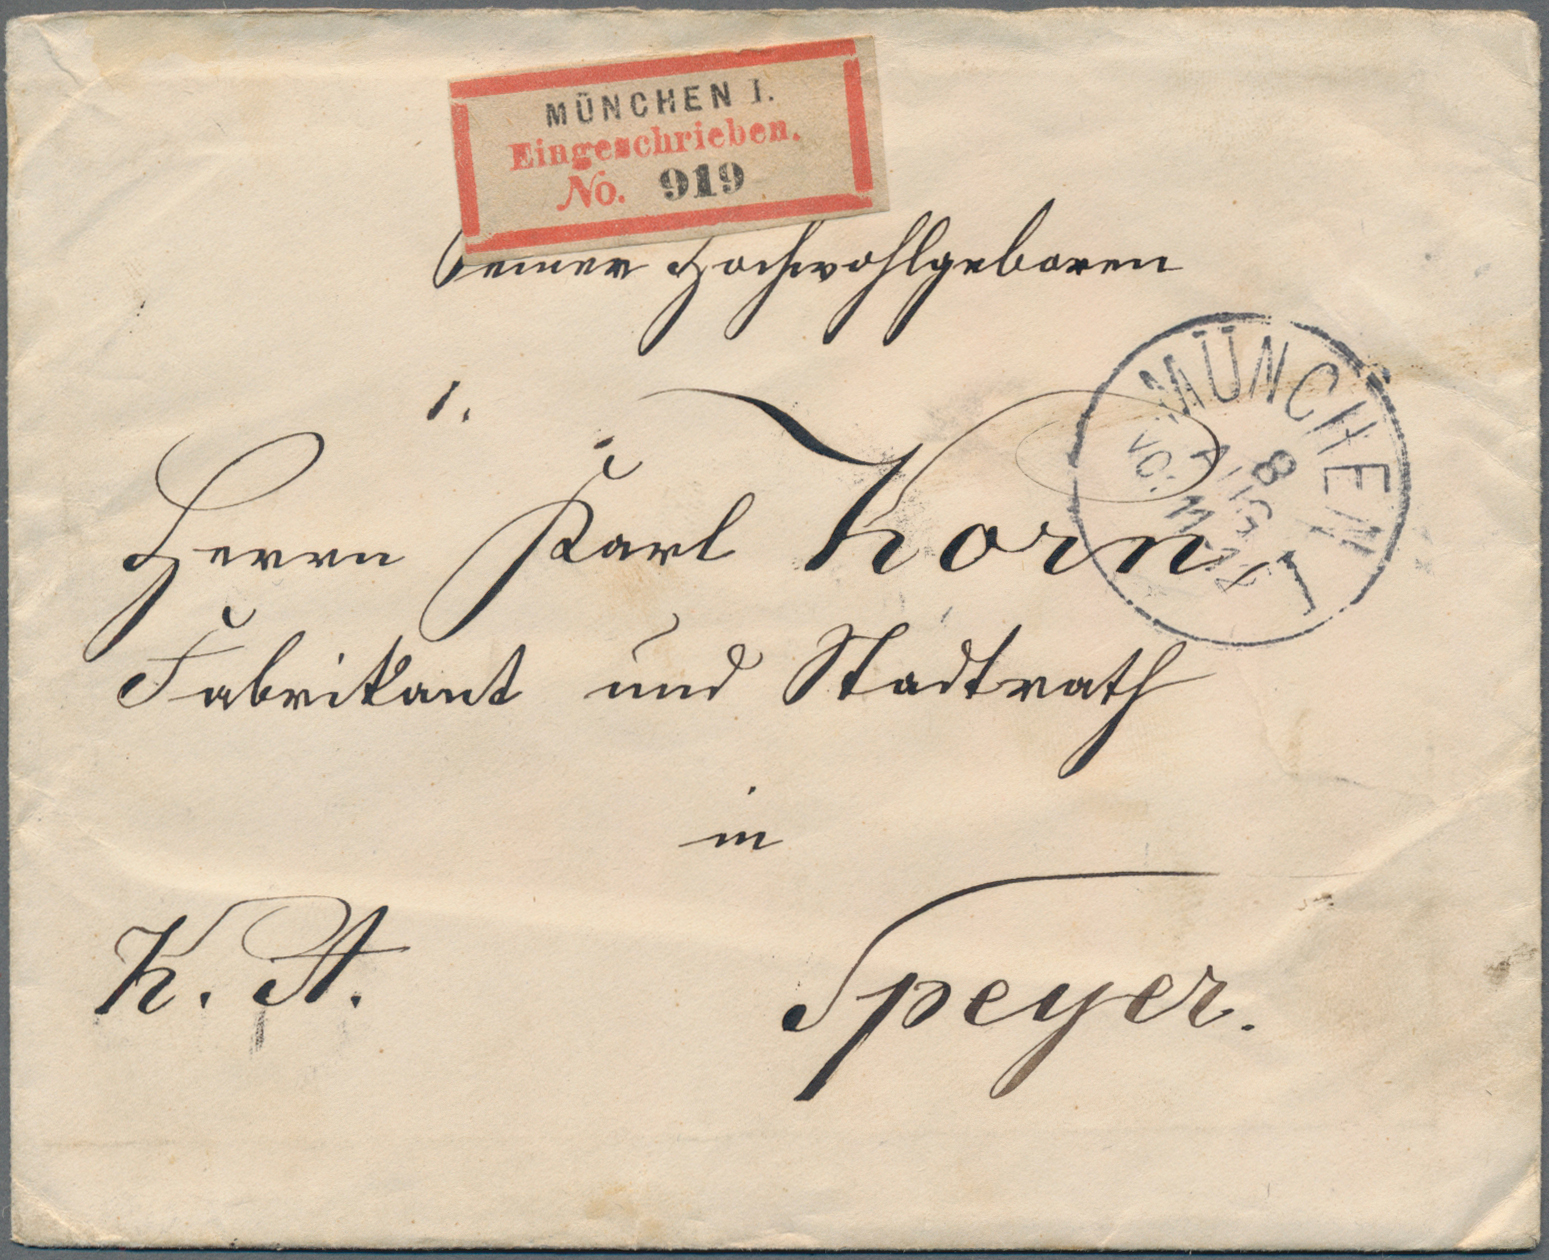 MÜNCHEN I.
Eingeschrieben.
No. 919
Seiner Hochwohlgeboren
Herrn Karl Korn,
Fabrikant und Stadtrath
in
K. A.
Speyer.
MÜNCHEN I
8
AUG
VO: 11-12